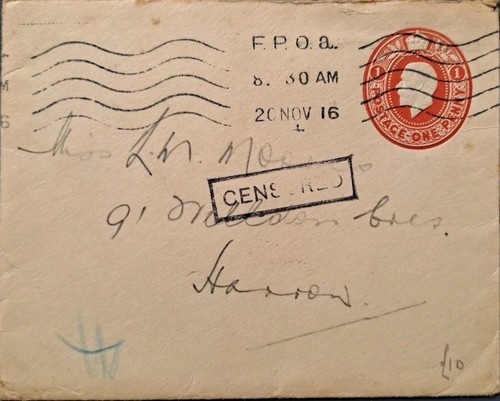 F.P.O.a.
8. 30 AM
20 NOV 16
1 1
POSTAGE·ONE·PENNY
Miss L. M.
CENSORED
91 Welldon Cres.
Harrow.
£10